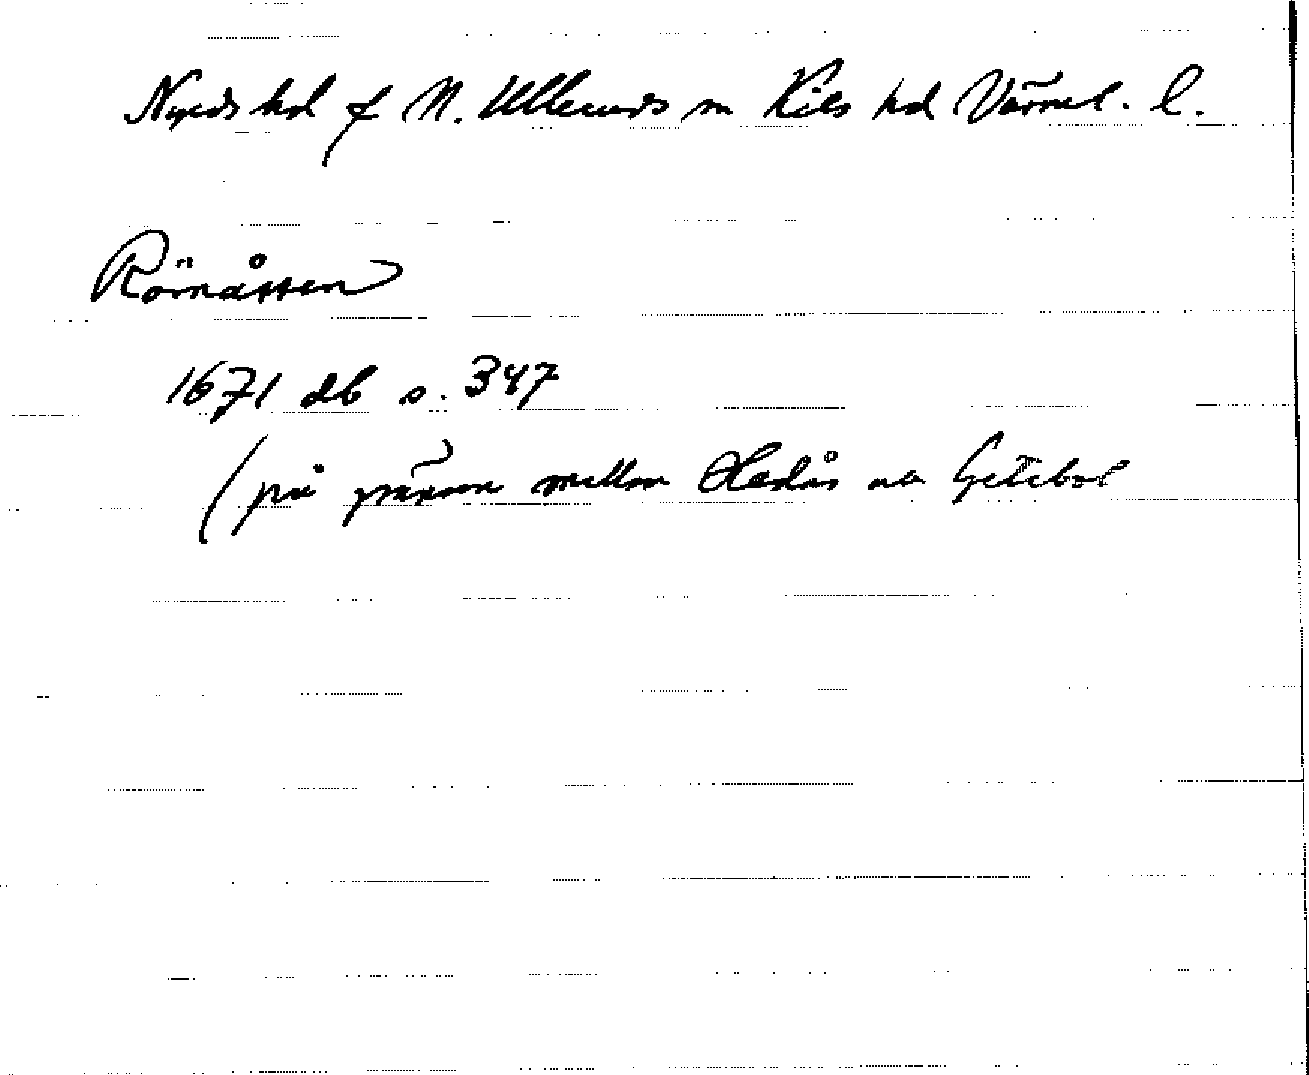 Nyeds hd f N. Ulleruds sn Kils hd Värml. l.
Rörnåsten
1671 db s. 347
(på gränsen mellan Hedås och Getebol